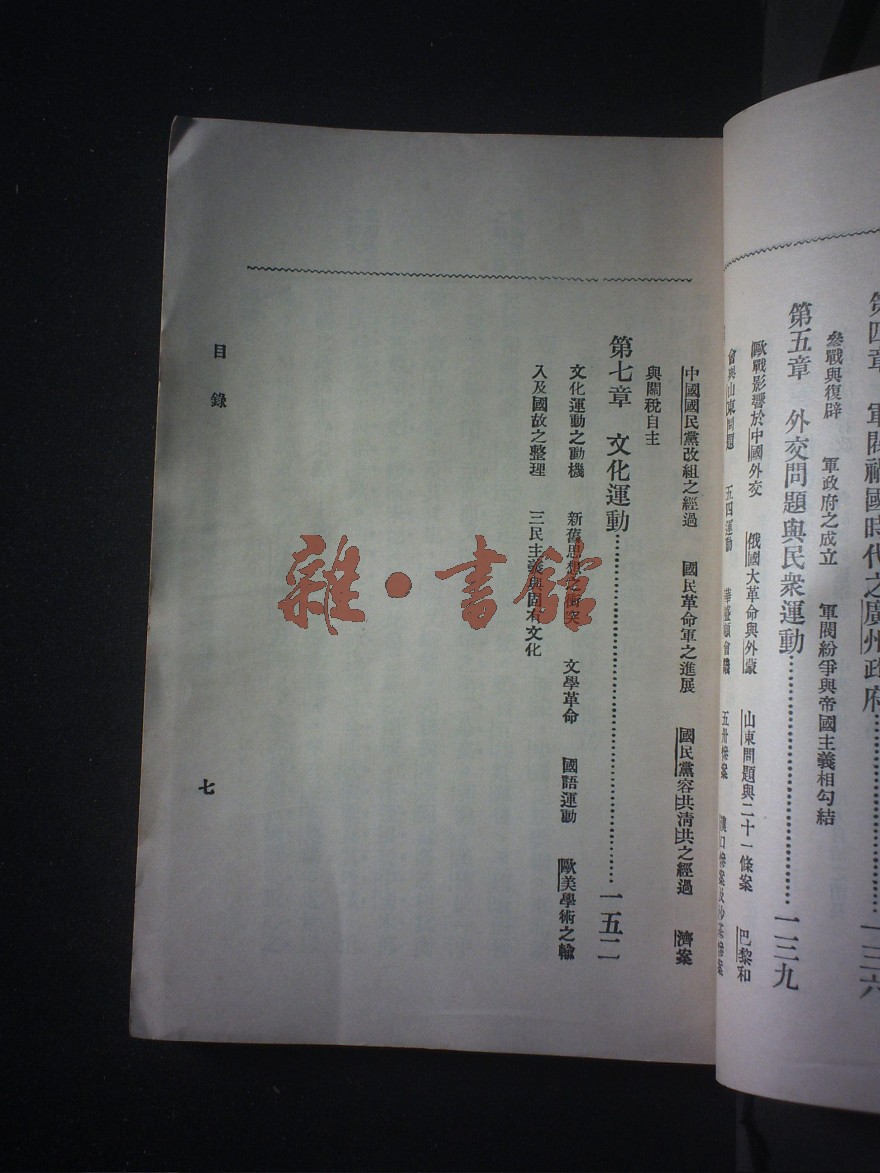 第四章　軍閥禍國時代之廣州政府……一三六
參戰與復辟　軍政府之成立　軍閥紛爭與帝國主義相勾結
第五章　外交問題與民衆運動……一三九
歐戰影響於中國外交　俄國大革命與外蒙　山東問題與二十一條案　巴黎和
會與山東問題　五四運動　華盛頓會議　五卅慘案
中國國民黨改組之經過　國民革命軍之進展　國民黨容共清共之經過　濟案
與關稅自主
第七章　文化運動……一五二
文化運動之動機　新舊思想之衝突　文學革命　國語運動　歐美學術之輸
入及國故之整理　三民主義與固有文化
目錄
七
雜·書館